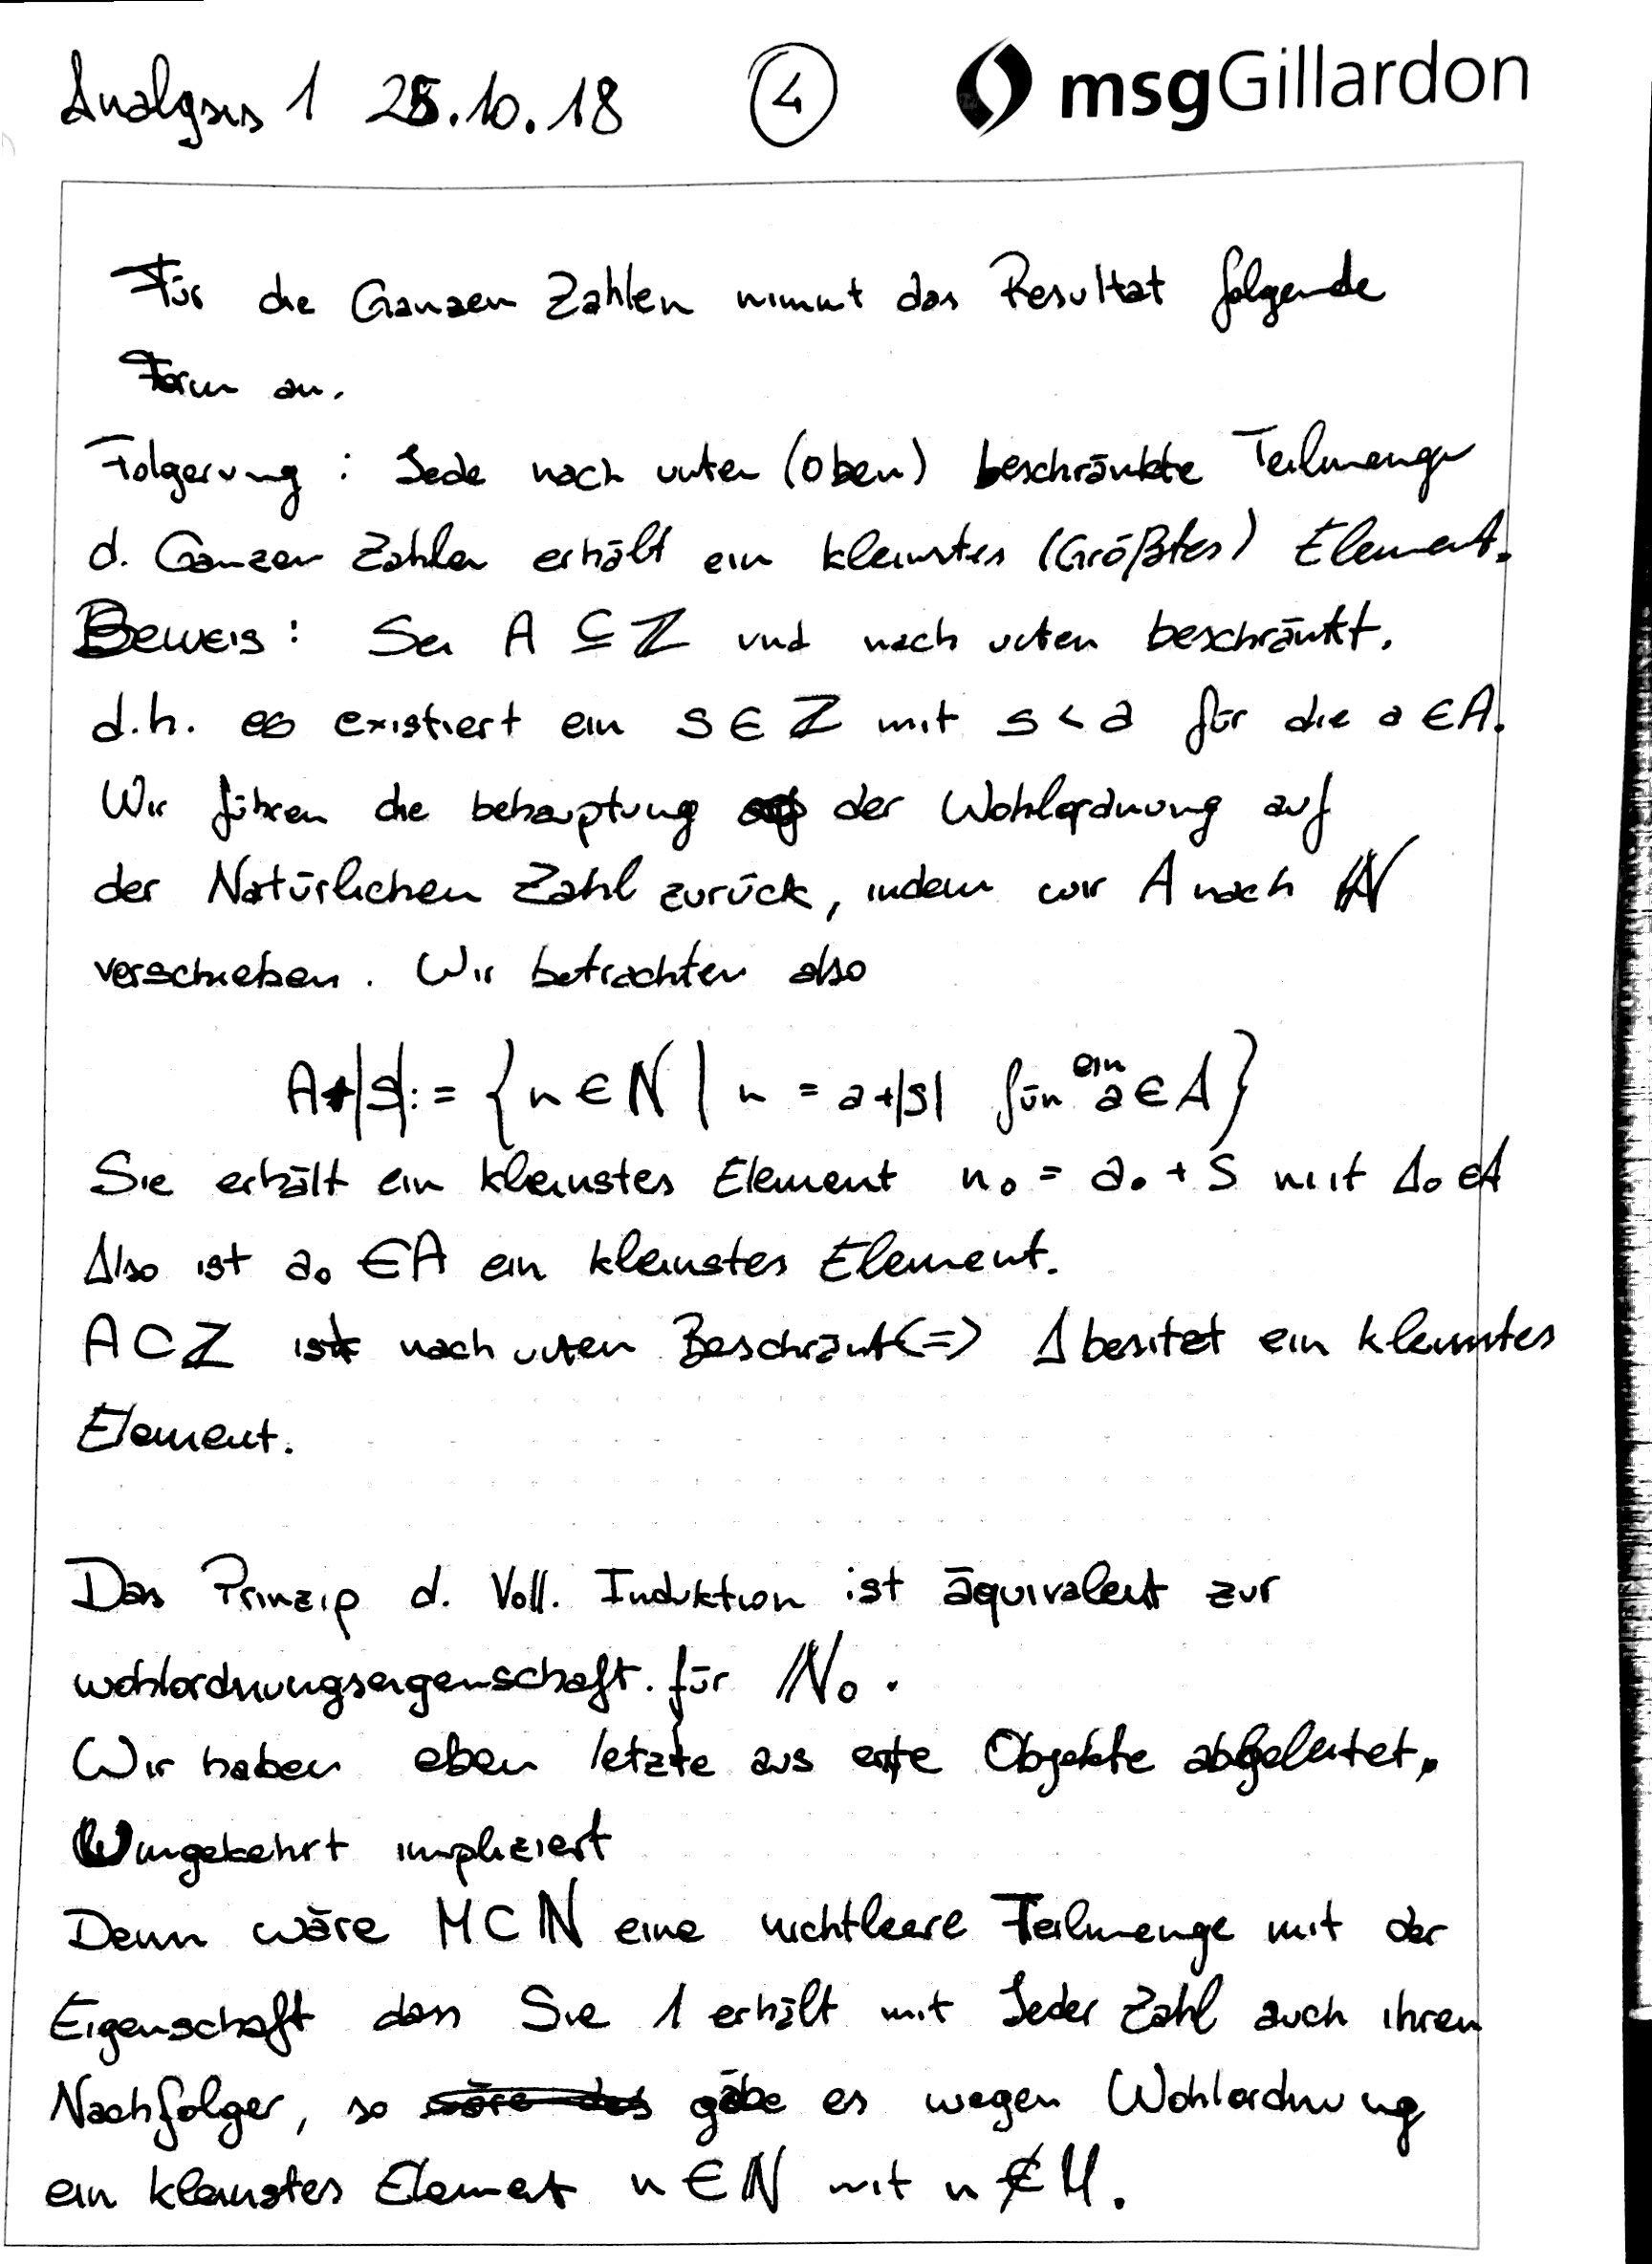 Analysis 1 25.10.18 4 msgGillardon
Für die Ganzen Zahlen nimmt das Resultat folgende
Form an.
Folgerung : Jede nach unten (oben) beschränkte Teilmenge
d. Ganzen Zahlen erhält ein kleinstes (Größtes) Element.
Beweis : Sei A ⊆ ℤ und nach unten beschränkt.
d.h. es existiert ein s ∈ ℤ mit s < a für die a ∈ A.
Wir führen die behauptung der Wohlordnung auf
der Natürlichen Zahl zurück, indem wir A nach ℕ
verschieben. Wir betrachten also
A+|S| := { n ∈ ℕ | n = a+|s| für ein a ∈ A }
Sie erhält ein kleinstes Element n₀ = a₀ + S mit A₀ ∈ A
Also ist a₀ ∈ A ein kleinstes Element.
A ⊂ ℤ ist nach unten Beschränkt <=> A besitet ein kleinstes
Element.
Das Prinzip d. Voll. Induktion ist äquivalent zur
wohlordnungseigenschaft. für ℕ₀.
Wir haben eben letzte aus erste Objekte abgeleitet.
Umgekehrt impliziert
Denn wäre M ⊂ ℕ eine nichtleere Teilmenge mit der
Eigenschaft dass Sie 1 erhält mit Jeder Zahl auch ihren
Nachfolger, so wäre das gäbe es wegen Wohlordnung
ein kleinstes Element n ∈ ℕ mit n ∉ M.